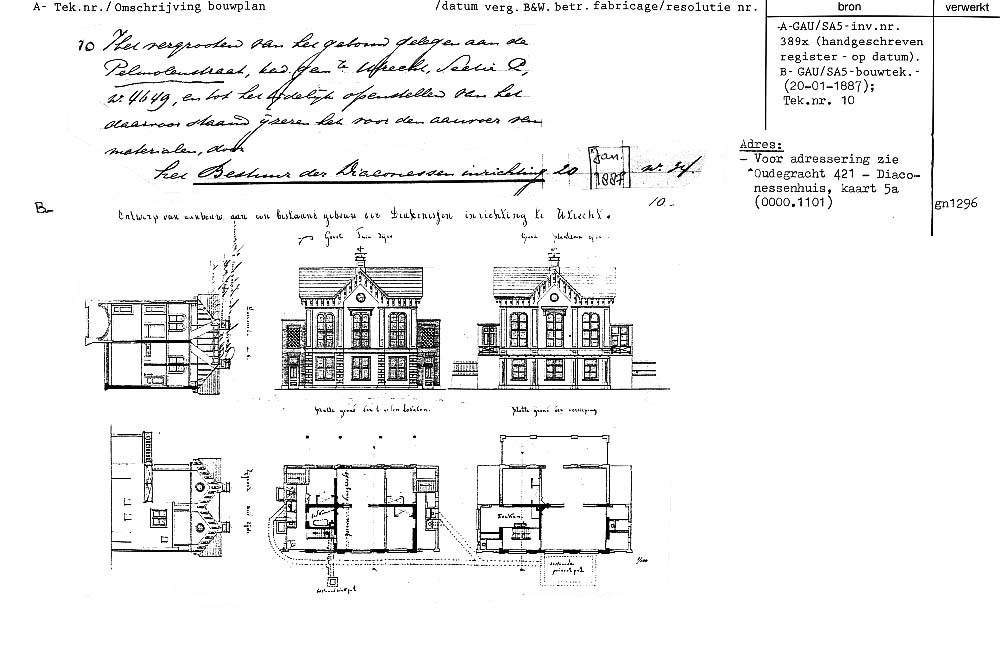 A- Tek.nr./Omschrijving bouwplan /datum verg. B&W. betr. fabricage/resolutie nr. bron verwerkt
10 Het vergrooten van het gebouw gelegen aan de
Pelmolenstraat, kad. gem.te Utrecht, Sectie C,
no. 4649, en tot het tijdelijk openstellen van het
daarvoor staand ijzeren hek voor den aanvoer van
materialen, door
het Bestuur der Diaconessen inrichting 20 Jan. 1887 no.
10-
A-GAU/SA5-inv.nr.
389x (handgeschreven
register - op datum).
B- GAU/SA5-bouwtek.-
(20-01-1887);
Tek.nr. 10
Adres:
- Voor adressering zie
Oudegracht 421 - Diaco-
nessenhuis, kaart 5a
(0000.1101)
gn1296
B-
Ontwerp van aanbouw aan een bestaand gebouw der Diakonessen inrichting te Utrecht.
Gevel Tuin zijde
Gevel
Platte grond der lokalen.
Platte grond der verdieping
bestaande
privaat put
1/100